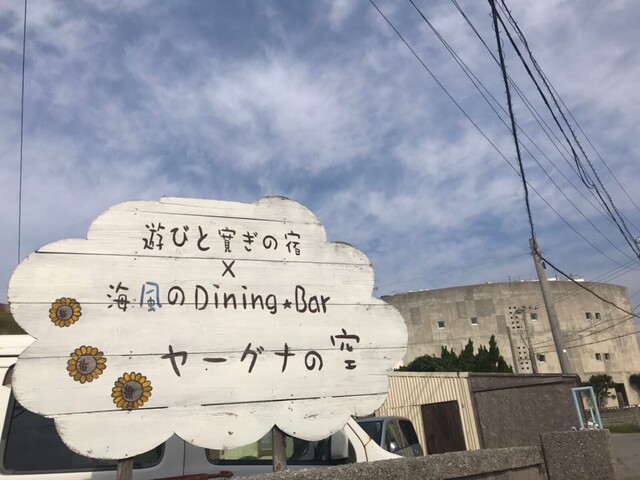 遊びと寛ぎの宿
×
海風のDining★Bar
ヤーグナの空